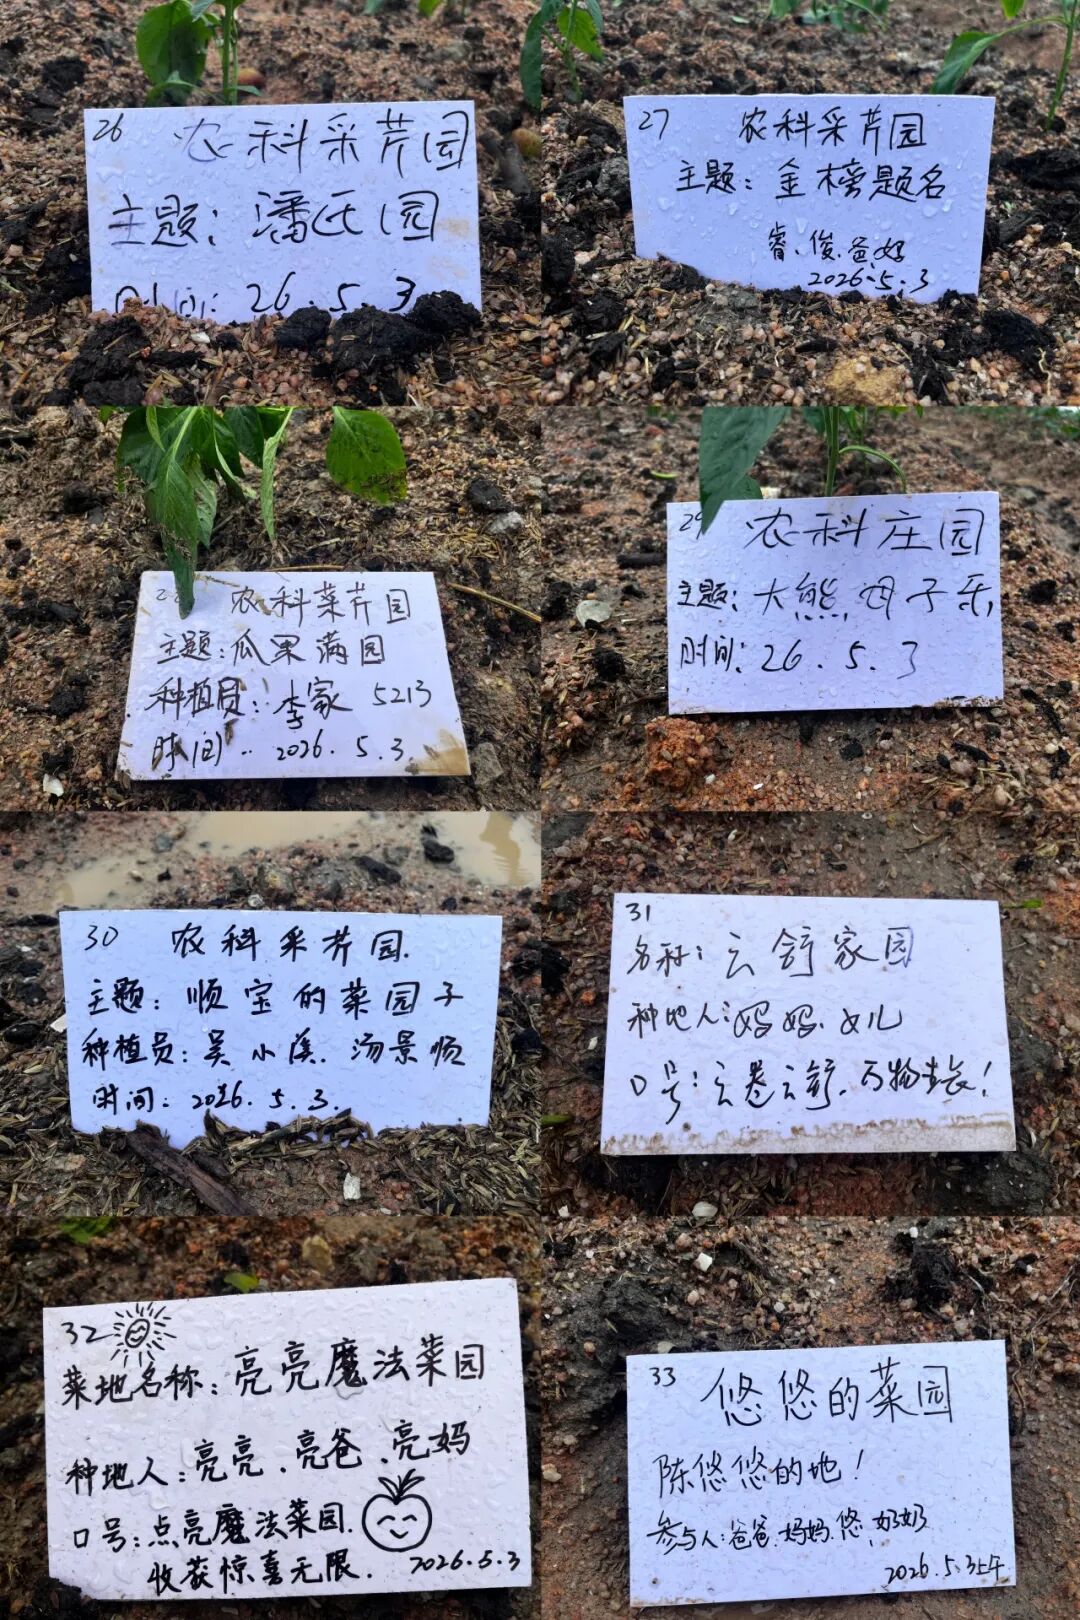 26
农科采芹园
主题：潘氏园
时间：26.5.3
27
农科采芹园
主题：金榜题名
睿.俊.爸.妈
2026.5.3
28
农科菜芹园
主题：瓜果满园
种植员：李家 5213
时间：2026.5.3.
29
农科庄园
主题：大熊母子乐
时间：26.5.3
30
农科采芹园.
主题：顺宝的菜园子
种植员：吴小溪.汤景顺
时间：2026.5.3.
31
名称：云舒家园
种地人：妈妈.女儿
口号：云卷云舒.万物生长！
32
菜地名称：亮亮魔法菜园
种地人：亮亮.亮爸.亮妈
口号：点亮魔法菜园.
收获惊喜无限.
2026.5.3
33
悠悠的菜园
陈悠悠的地！
参与人：爸爸.妈妈.悠.奶奶
2026.5.3上午